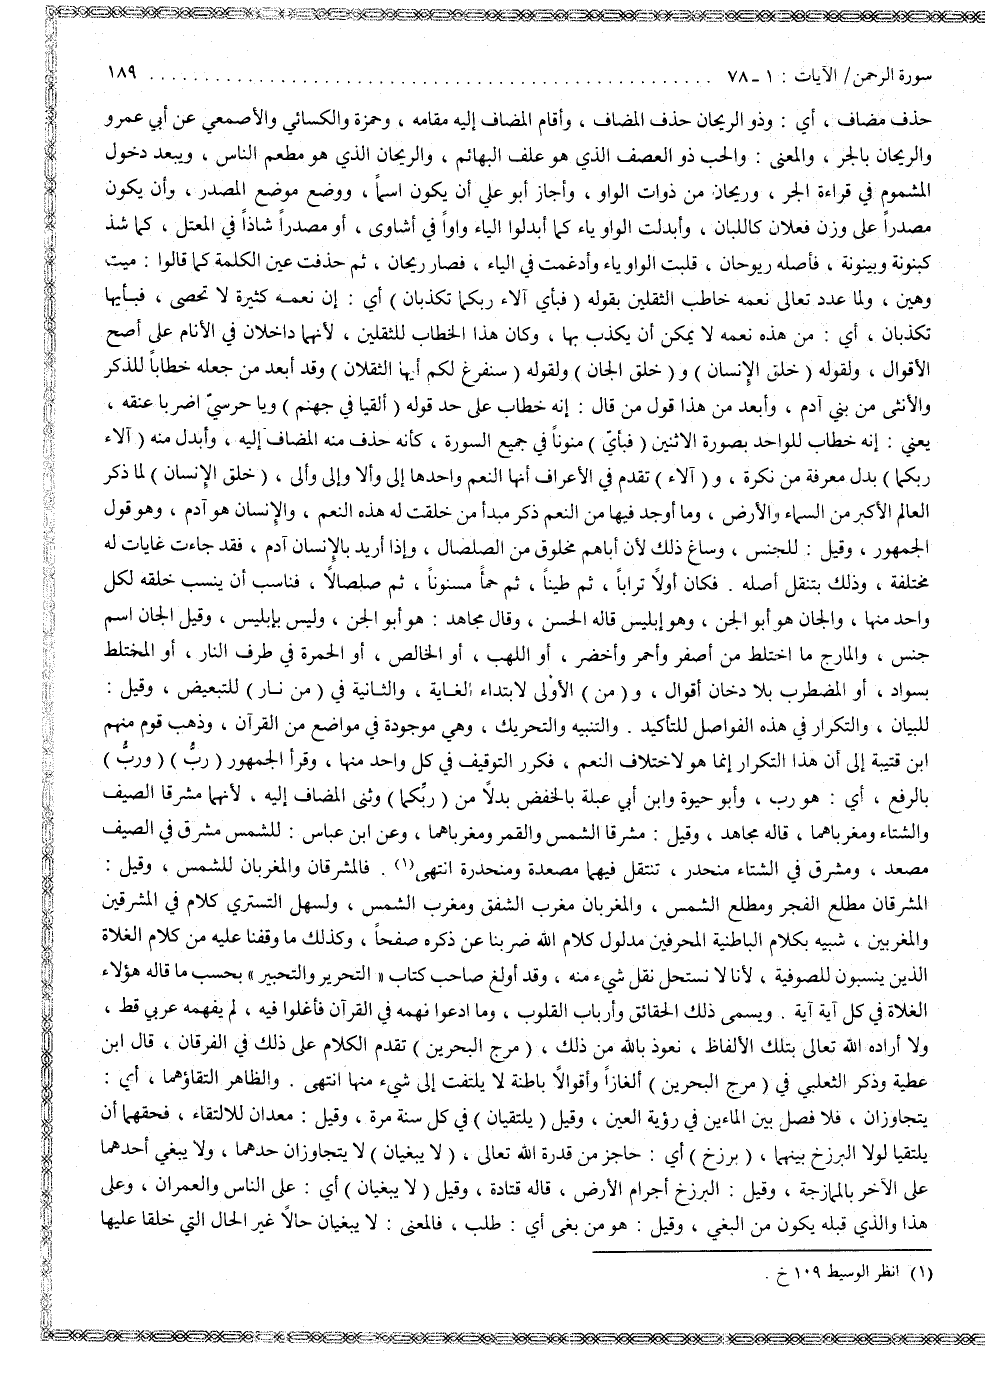 سورة الرحمن/ الآيات : ١ ـ ٧٨ . . . . . . . . . . . . . . . . . . . . . . . . . . . . . . . . . . . . . . . . . . . ١٨٩
حذف مضاف ، أي : وذو الريحان حذف المضاف ، وأقام المضاف إليه مقامه ، وحمزة والكسائي والأصمعي عن أبي عمرو
والريحان بالجر ، والمعنى : والحب ذو العصف الذي هو علف البهائم ، والريحان الذي هو مطعم الناس ، ويبعد دخول
المشموم في قراءة الجر ، وريحان من ذوات الواو ، وأجاز أبو علي أن يكون اسماً ، ووضع موضع المصدر ، وأن يكون
مصدراً على وزن فعلان كاللبان ، وأبدلت الواو ياء كما أبدلوا الياء واواً في أشاوى ، أو مصدراً شاذاً في المعتل ، كما شذ
كبنونة وبينونة ، فأصله ريوحان ، قلبت الواو ياء وأدغمت في الياء ، فصار ريحان ، ثم حذفت عين الكلمة كما قالوا : ميت
وهين ، ولما عدد تعالى نعمه خاطب الثقلين بقوله ( فبأي آلاء ربكما تكذبان ) أي : إن نعمـه كثيرة لا تحصى ، فبـأيها
تكذبان ، أي : من هذه نعمه لا يمكن أن يكذب بها ، وكان هذا الخطاب للثقلين ، لأنهما داخلان في الأنام على أصح
الأقوال ، ولقوله ( خلق الإنسان ) و ( خلق الجان ) ولقوله ( سنفرغ لكم أيها الثقلان ) وقد أبعد من جعله خطاباً للذكر
والأنثى من بني آدم ، وأبعد من هذا قول من قال : إنه خطاب على حد قوله ( ألقيا في جهنم ) ويا حرسيّ اضربا عنقه ،
يعني : إنه خطاب للواحد بصورة الاثنين ( فبأيّ ) منوناً في جميع السورة ، كأنه حذف منه المضاف إليه ، وأبدل منه ( آلاء
ربكما ) بدل معرفة من نكرة ، و ( آلاء ) تقدم في الأعراف أنها النعم واحدها إلى وألا وإلى وألى ، ( خلق الإنسان ) لما ذكر
العالم الأكبر من السماء والأرض ، وما أوجد فيها من النعم ذكر مبدأ من خلقت له هذه النعم ، والإنسان هو آدم ، وهو قول
الجمهور ، وقيل : للجنس ، وساغ ذلك لأن أباهم مخلوق من الصلصال ، وإذا أريد بالإنسان آدم ، فقد جاءت غايات له
مختلفة ، وذلك بتنقل أصله . فكان أولاً تراباً ، ثم طيناً ، ثم حمأ مسنوناً ، ثم صلصالاً ، فناسب أن ينسب خلقه لكل
واحد منها ، والجان هو أبو الجن ، وهو إبليس قاله الحسن ، وقال مجاهد : هو أبو الجن ، وليس بإبليس ، وقيل الجان اسم
جنس ، والمارج ما اختلط من أصفر وأحمر وأخضر ، أو اللهب ، أو الخالص ، أو الحمرة في طرف النار ، أو المختلط
بسواد ، أو المضطرب بلا دخان أقوال ، و ( من ) الأوْلى لابتداء الغـاية ، والثـانية في ( من نـار ) للتبعيض ، وقيل :
للبيان ، والتكرار في هذه الفواصل للتأكيد . والتنبيه والتحريك ، وهي موجودة في مواضع من القرآن ، وذهب قوم منهم
ابن قتيبة إلى أن هذا التكرار إنما هو لاختلاف النعم ، فكرر التوقيف في كل واحد منها ، وقرأ الجمهور ( ربُّ ) ( وربُّ )
بالرفع ، أي : هو رب ، وأبو حيوة وابن أبي عبلة بالخفض بدلاً من ( ربِّكما ) وثنى المضاف إليه ، لأنهما مشرقا الصيف
والشتاء ومغرباهما ، قاله مجاهد ، وقيل : مشرقا الشمس والقمر ومغرباهما ، وعن ابن عباس : للشمس مشرق في الصيف
مصعد ، ومشرق في الشتاء منحدر ، تنتقل فيهما مصعدة ومنحدرة انتهى(١) . فالمشرقان والمغربان للشمس ، وقيل :
المشرقان مطلع الفجر ومطلع الشمس ، والمغربان مغرب الشفق ومغرب الشمس ، ولسهل التستري كلام في المشرقين
والمغربين ، شبيه بكلام الباطنية المحرفين مدلول كلام الله ضربنا عن ذكره صفحاً ، وكذلك ما وقفنا عليه من كلام الغلاة
الذين ينسبون للصوفية ، لأنا لا نستحل نقل شيء منه ، وقد أولغ صاحب كتاب « التحرير والتحبير » بحسب ما قاله هؤلاء
الغلاة في كل آية آية . ويسمى ذلك الحقائق وأرباب القلوب ، وما ادعوا فهمه في القرآن فأغلوا فيه ، لم يفهمه عربي قط ،
ولا أراده الله تعالى بتلك الألفاظ ، نعوذ بالله من ذلك ، ( مرج البحرين ) تقدم الكلام على ذلك في الفرقان ، قال ابن
عطية وذكر الثعلبي في ( مرج البحرين ) ألغازاً وأقوالاً باطنة لا يلتفت إلى شيء منها انتهى . والظاهر التقاؤهما ، أي :
يتجاوزان ، فلا فصل بين الماءين في رؤية العين ، وقيل ( يلتقيان ) في كل سنة مرة ، وقيل : معدان للالتقاء ، فحقهما أن
يلتقيا لولا البرزخ بينهما ، ( برزخ ) أي : حاجز من قدرة الله تعالى ، ( لا يبغيان ) لا يتجاوزان حدهما ، ولا يبغي أحدهما
على الآخر بالممازجة ، وقيل : البرزخ أجرام الأرض ، قاله قتادة ، وقيل ( لا يبغيان ) أي : على الناس والعمران ، وعلى
هذا والذي قبله يكون من البغي ، وقيل : هو من بغى أي : طلب ، فالمعنى : لا يبغيان حالاً غير الحال التي خلقا عليها
(١) انظر الوسيط ١٠٩ خ .